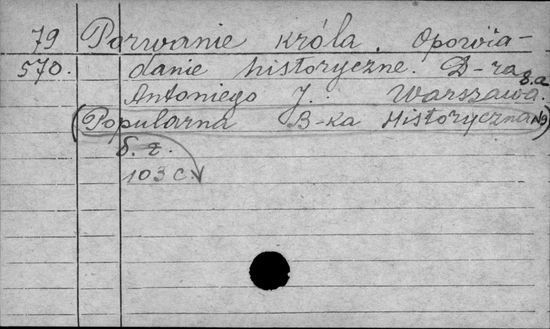 79 Porwanie króla. Opowia-
570. danie historyczne. D-ra
Antoniego J. Warszawa. s.a.
(Popularna B-ka Historyczna N9)
б. г.
103 с.